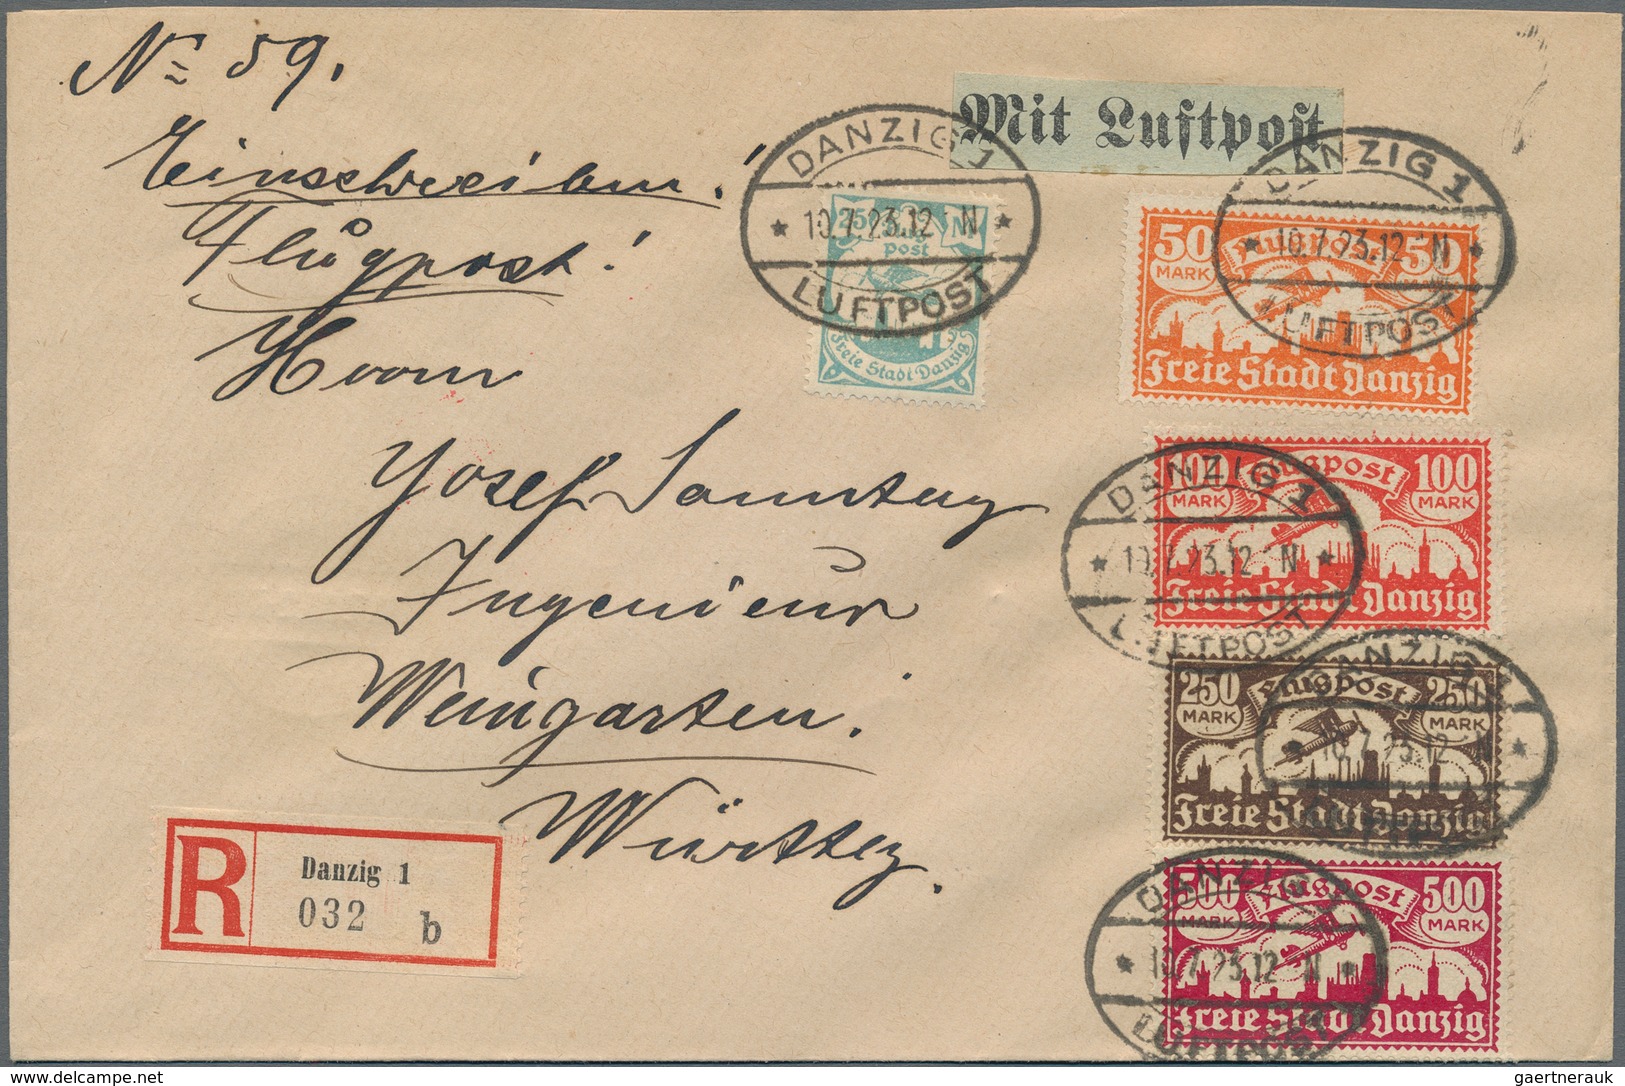 No 59.
Einschreiben!
Flugpost!
Herrn
Josef Sonntag
Ingenieur
Weingarten.
Württbg.
Mit Luftpost
DANZIG 1
* 10.7.23.12 N *
LUFTPOST
250
post
Freie Stadt Danzig
DANZIG 1
* 10.7.23.12 N *
LUFTPOST
50 MARK Flugpost 50
Freie Stadt Danzig
DANZIG 1
* 10.7.23.12 N *
LUFTPOST
100 MARK Flugpost 100 MARK
Freie Stadt Danzig
DANZIG 1
10.7.23.12 N *
250 MARK Flugpost 250 MARK
Freie Stadt Danzig
DANZIG
* 10.7.23.12 N *
LUFTPOST
500 MARK Flugpost 500 MARK
Freie Stadt Danzig
R
Danzig 1
032 b
© DELCAMPE.NET
gaertnerauk